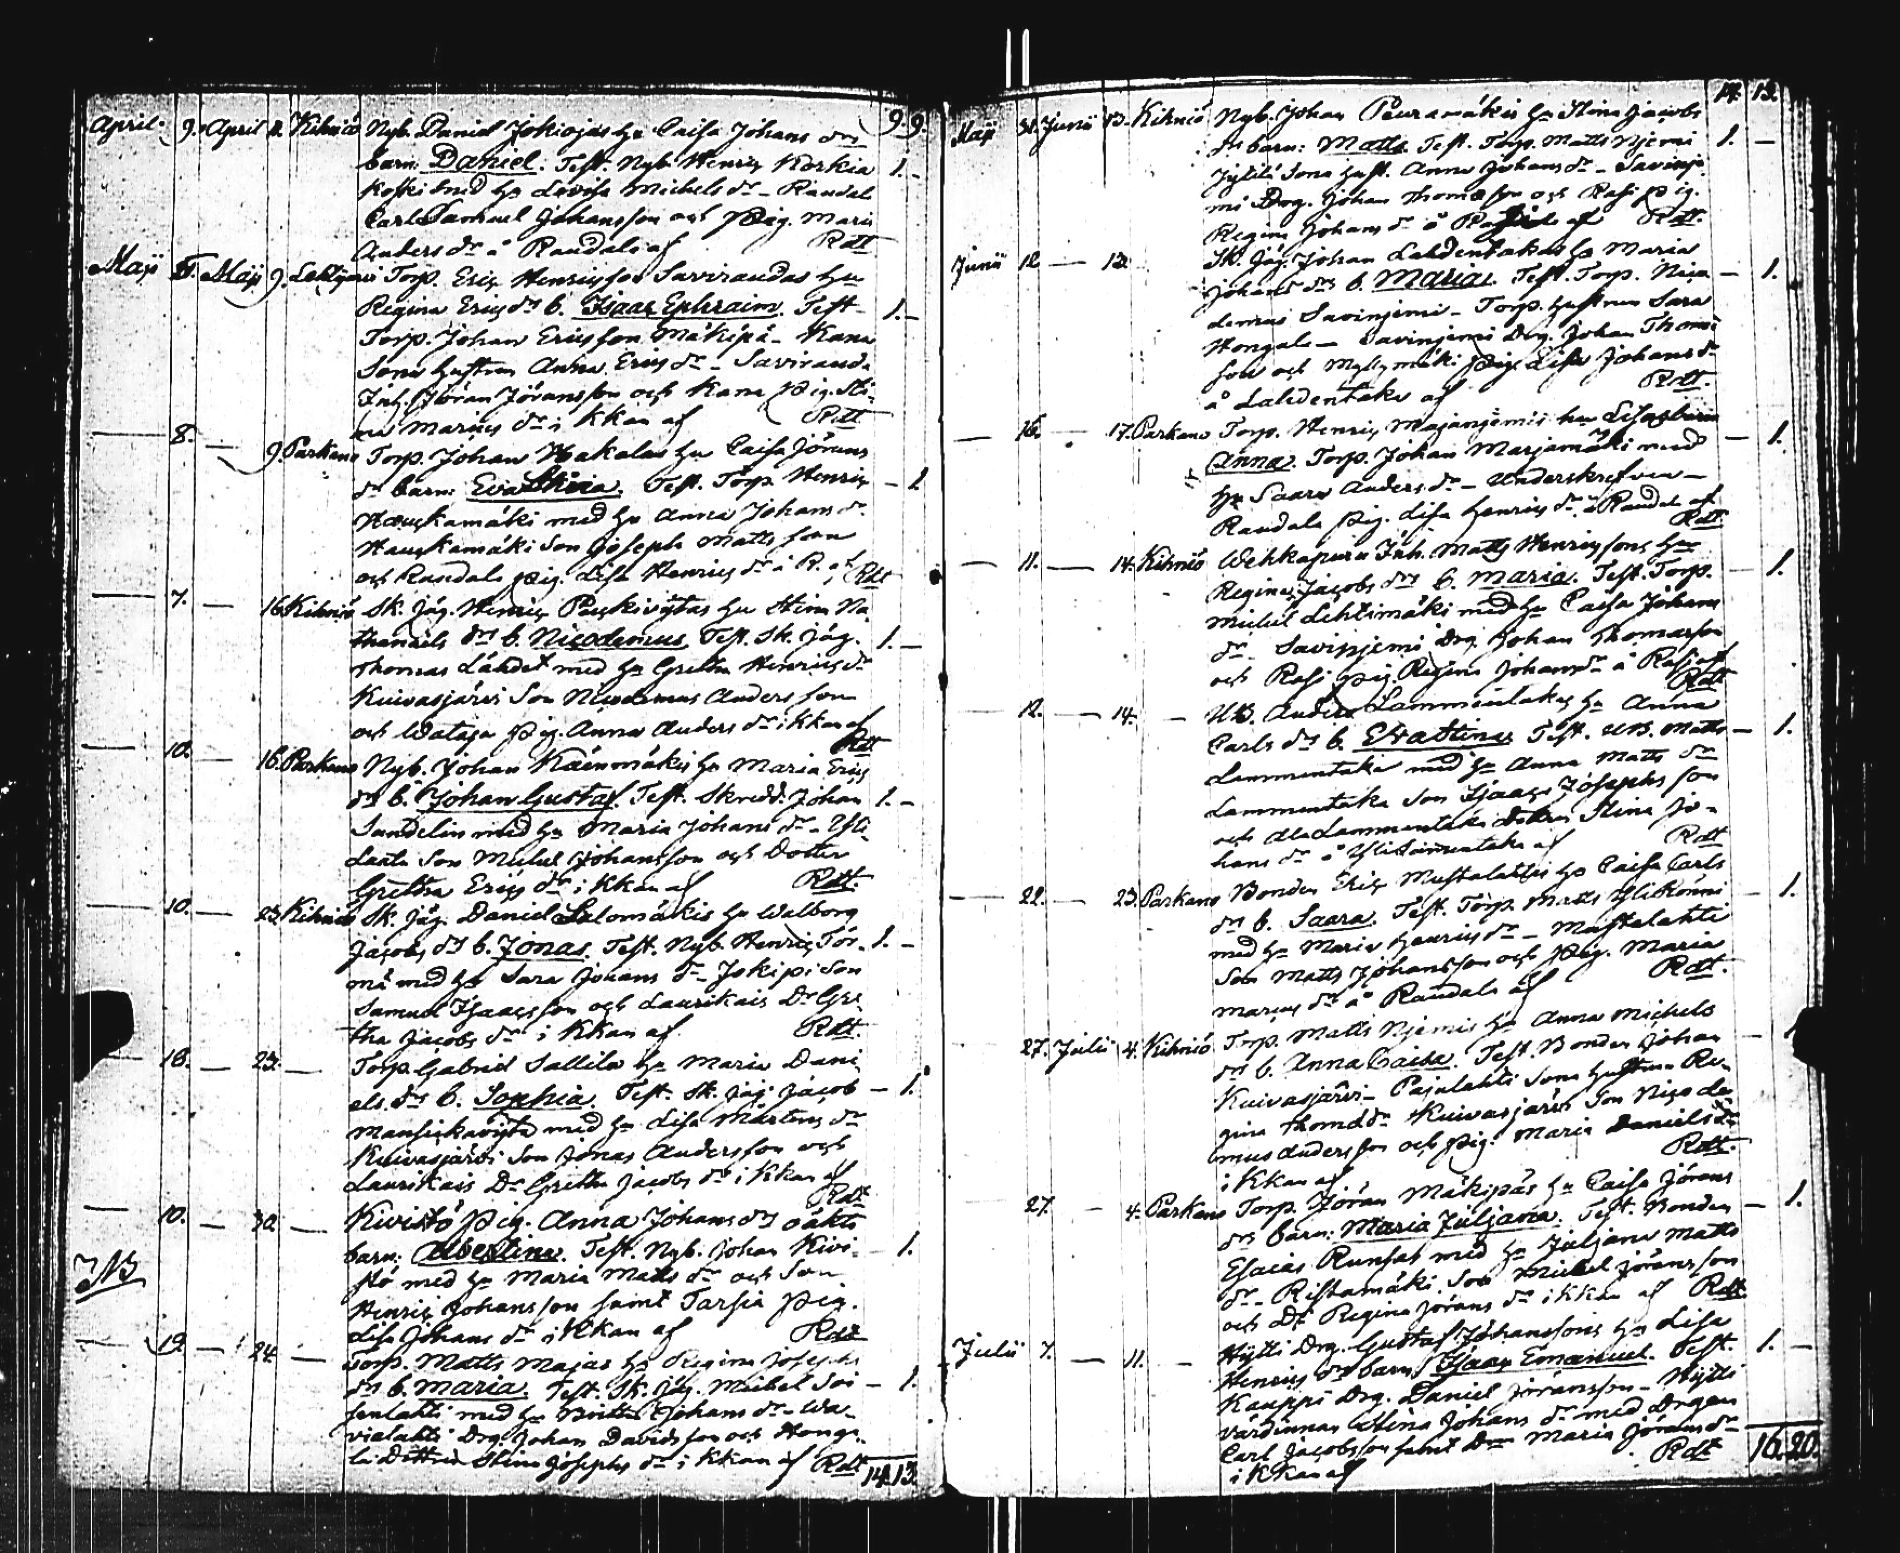 9 9.
April. 9. April 11. Kihniö Nyb. Daniel Jokiojas hu Caisa Johans drs
barn: Daniel. Test. Nyb. Henric Korkia 1. -
koski med hu Lovisa Michels dr - Raudala
Carl Samuel Johansson och Pig. Maria
Anders dr å Raudala af Rdtt
Maji 5. Maji 9. Torp. Eric Henricsson Saviraudas hu
Regina Erics drs b. Isaac Ephraim. Test. 1. -
Torp. Johan Ericsson Mäkipä - Kana
Sons hustrun Anna Erics dr - Savirauda
Inh. Jöran Jöransson och Kana Pig. Sti-
na Marics dr i Kkan af Rdtt
8. — 9. Parkano Torp. Johan Hakalas hu Caisa Jörans
dr barn: Eva Stina. Test. Torp. Henric - 1
Hauskamäki med hu Anna Johans dr
Hauskamäki Son Joseph Mattsson
och Raudala Pig. Lisa Henrics dr å R. af Rdtt
7. — 16. Kihniö Sk. Jäg. Henric hu Stina Na
thanaels drs b. Nicodemus. Test. Sk. Jäg. 1. -
Thomas Lähdet med hu Gretha Henrics dr
Kuivasjärvi Son Nicodemus Andersson
och Wataja Pig. Anna Anders dr i Kkan af
Rdtt
10. — 16. Parkano Nyb. Johan Käenmäkis hu Maria Erics
drs b. Johan Gustaf. Test. Skredd. Johan 1. -
Sandelin med hu Maria Johans dr - Yli
Laste Son Michel Johansson och Dotter
Gretha Erics dr i Kkan af Rdtt.
10. — 23. Kihniö Sk. Jäg. Daniel Salomäkis hu Walborg
Jacobs drs b. Jonas. Test. Nyb. Henric Tör- 1. -
mä med hu Sara Johans dr - Jokipi Son
Samuel Isaacsson och Laurikais Dr Gre-
tha Jacobs dr i Kkan af Rdtt.
18. — 23. — Torp. Gabriel Sallila hu Maria Dani-
els drs b. Sophia. Test. Sk. Jäg. Jacob - 1.
Mansickaviita med hu Lisa Mårtens dr
Kuivasjärvi Son Jonas Andersson och
Laurikais Dr Gretha Jacobs dr i Kkan af
Rdtt
10. — 30. — Kivistö Pig. Anna Johans drs oäkta
barn: Albertina. Test. Nyb. Johan Kivi- 1.
NB stö med hu Maria Matts dr och Son
Henric Johansson samt Tarsia Pig.
Lisa Johans dr i Kkan af Rdtt
19. — 24. — Torp. Matts Majas hu Regina Josephs
drs b. Maria. Test. Sk. Jäg. Michel Soi - 1.
senlahti med hu Britta Johans dr - Wa-
vialahti Drg. Johan Davidsson och Honga-
la Dottren Stina Josephs dr i Kkan af Rdtt
14 13.
14 13.
Maji 31. Junii 13. Kihniö Nyb. Johan Peuramäkis hu Stina Jacobs
drs barn: Matts. Test. Torp. Matts Njemi 1. -
Sons hust. Anna Johans dr - Savinje
mi Drg. Johan Thomasson och Rasi Pig.
Regina Johans dr å af Rdtt.
Junii 12 — 13. Sk. Jäg. Johan Lahdentakas hu Maria
Johans drs b. Maria. Test. Torp. Nico - 1.
demus Savinjemi - Torp. hustrun Sara
Hongala - Savinjemi Drg. Johan Thomas
son och Myllymäki Pig. Lisa Johans dr
å Lahdentaka af Rdtt.
16. — 17. Parkano Torp. Henric Majanjemis hu Lisas barn - 1.
Anna. Torp. Johan Marjamäki med
hu Saara Anders dr - Underskrefven -
Raudala Pig. Lisa Henrics dr å Raudala af
Rdtt
11. — 14. Kihniö Inh. Matts Henricssons hu
Regina Jacobs drs b. Maria. Test. Torp. - 1.
Michel Lehtimäki med hu Caisa Johans
dr - Savinjemi Drg. Johan Thomasson
och Rasi Pig. Regina Johans dr å Rasi af
Rdtt
12. — 14. — UB. Anders Lammentakas hu Anna
Carls drs b. Eva Stina. Test. UB. Matts - 1.
Lammentaka med hu Anna Matts dr
Lammentaka Son Isaac Josephsson
och Ala Lammentaka Dottren Stina Jo-
hans dr å af Rdtt
22. — 23. Parkano Bonden Eric Mustalahtis hu Caisa Carls
drs b. Saara. Test. Torp. Matts Ylikönni - 1.
med hu Maria Henrics dr - Mustalahti
Son Matts Johansson och Pig. Maria
Marics dr å Raudala af Rdtt.
27. Julii 4. Kihniö Torp. Matts Njemis hu Anna Michels
drs b. Anna Caisa. Test. Bonden Johan - 1
Kuivasjärvi - Pajulahti Sons hustrun Re-
gina Thomæ dr Kuivasjärvi Son Nicode-
mus Andersson och Pig. Maria Daniels dr
i Kkan af Rdtt.
27. — 4. Parkano Torp. Jöran Mäkipäs hu Caisa Jörans
drs barn: Maria Juljana. Test. Bonden - 1.
Esaias Runsas med hu Juljana Matts
dr - Ristamäki Son Michel Jöransson
och Dr Regina Jörans dr i Kkan af Rdtt.
Julii 7. — 11. — Hytti Drg. Gustaf Johanssons hu Lisa
Henrics drs barn Isaac Emanuel. Test. 1. -
Kauppi Drg. Daniel Jöransson - Hytti
värdinnan Stina Johans dr med Drgen
Carl Jacobsson samt Drn Maria Jörans dr
i Kkan af Rdtt
16. 20.